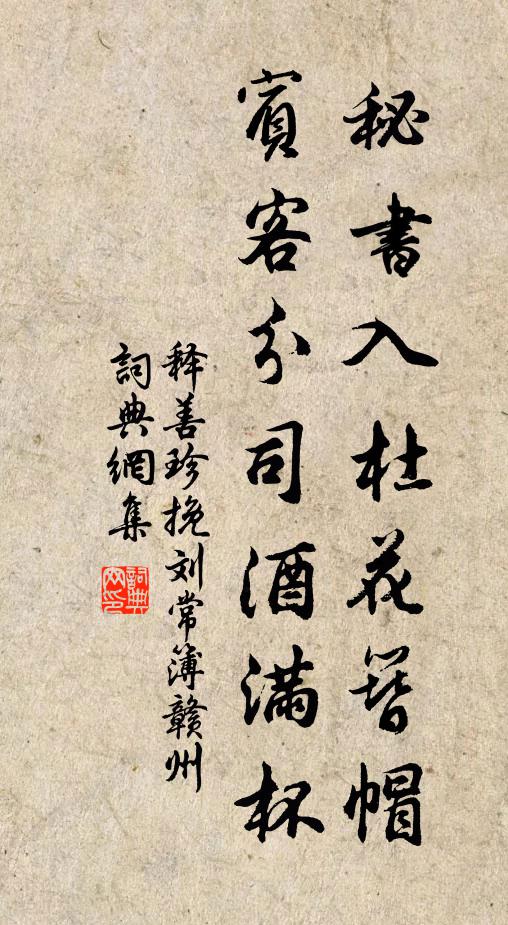 秘書入杜花簪帽
賓客分司酒滿杯
释善珍挽刘常簿赣州
詞典網集
詞典网印